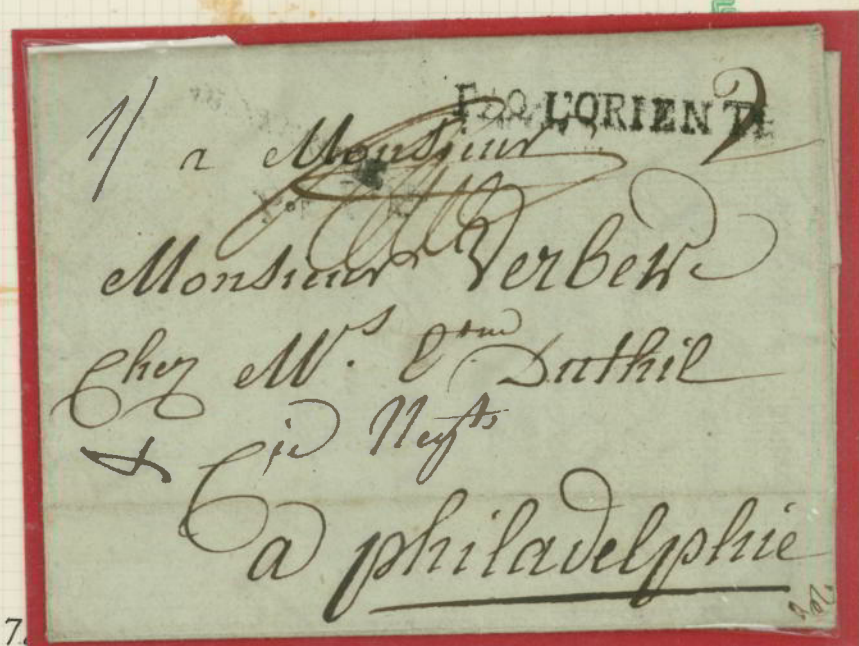 1/
PAQ L'ORIENT
2
a Monsieur
Monsieur Verbeke
Chez Mrs. Duthil
& Cie Negts
a philadelphie
7.